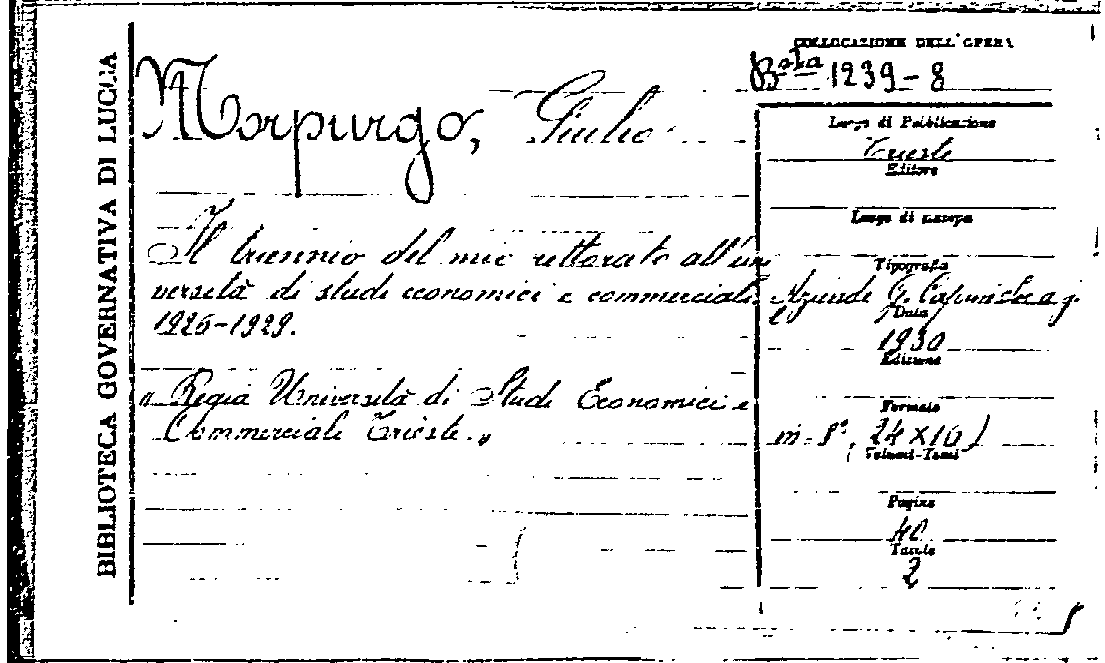 BIBLIOTECA GOVERNATIVA DI LUCCA
COLLOCAZIONE DELL'OPERA
Bsta 1239-8
Morpurgo, Giulio
Luogo di Pubblicazione
Trieste
Editore
Luogo di stampa
Il triennio del mio rettorato all'uni
versità di studi economici e commerciali
1926-1929.
Tipografia
Aziende G. Caprin
Data
1930
Edizione
"Regia Università di Studi Economici e
Commerciali Trieste."
Formato
in-8°, (24x16)
Volumi-Tomi
Pagine
40
Tavole
2